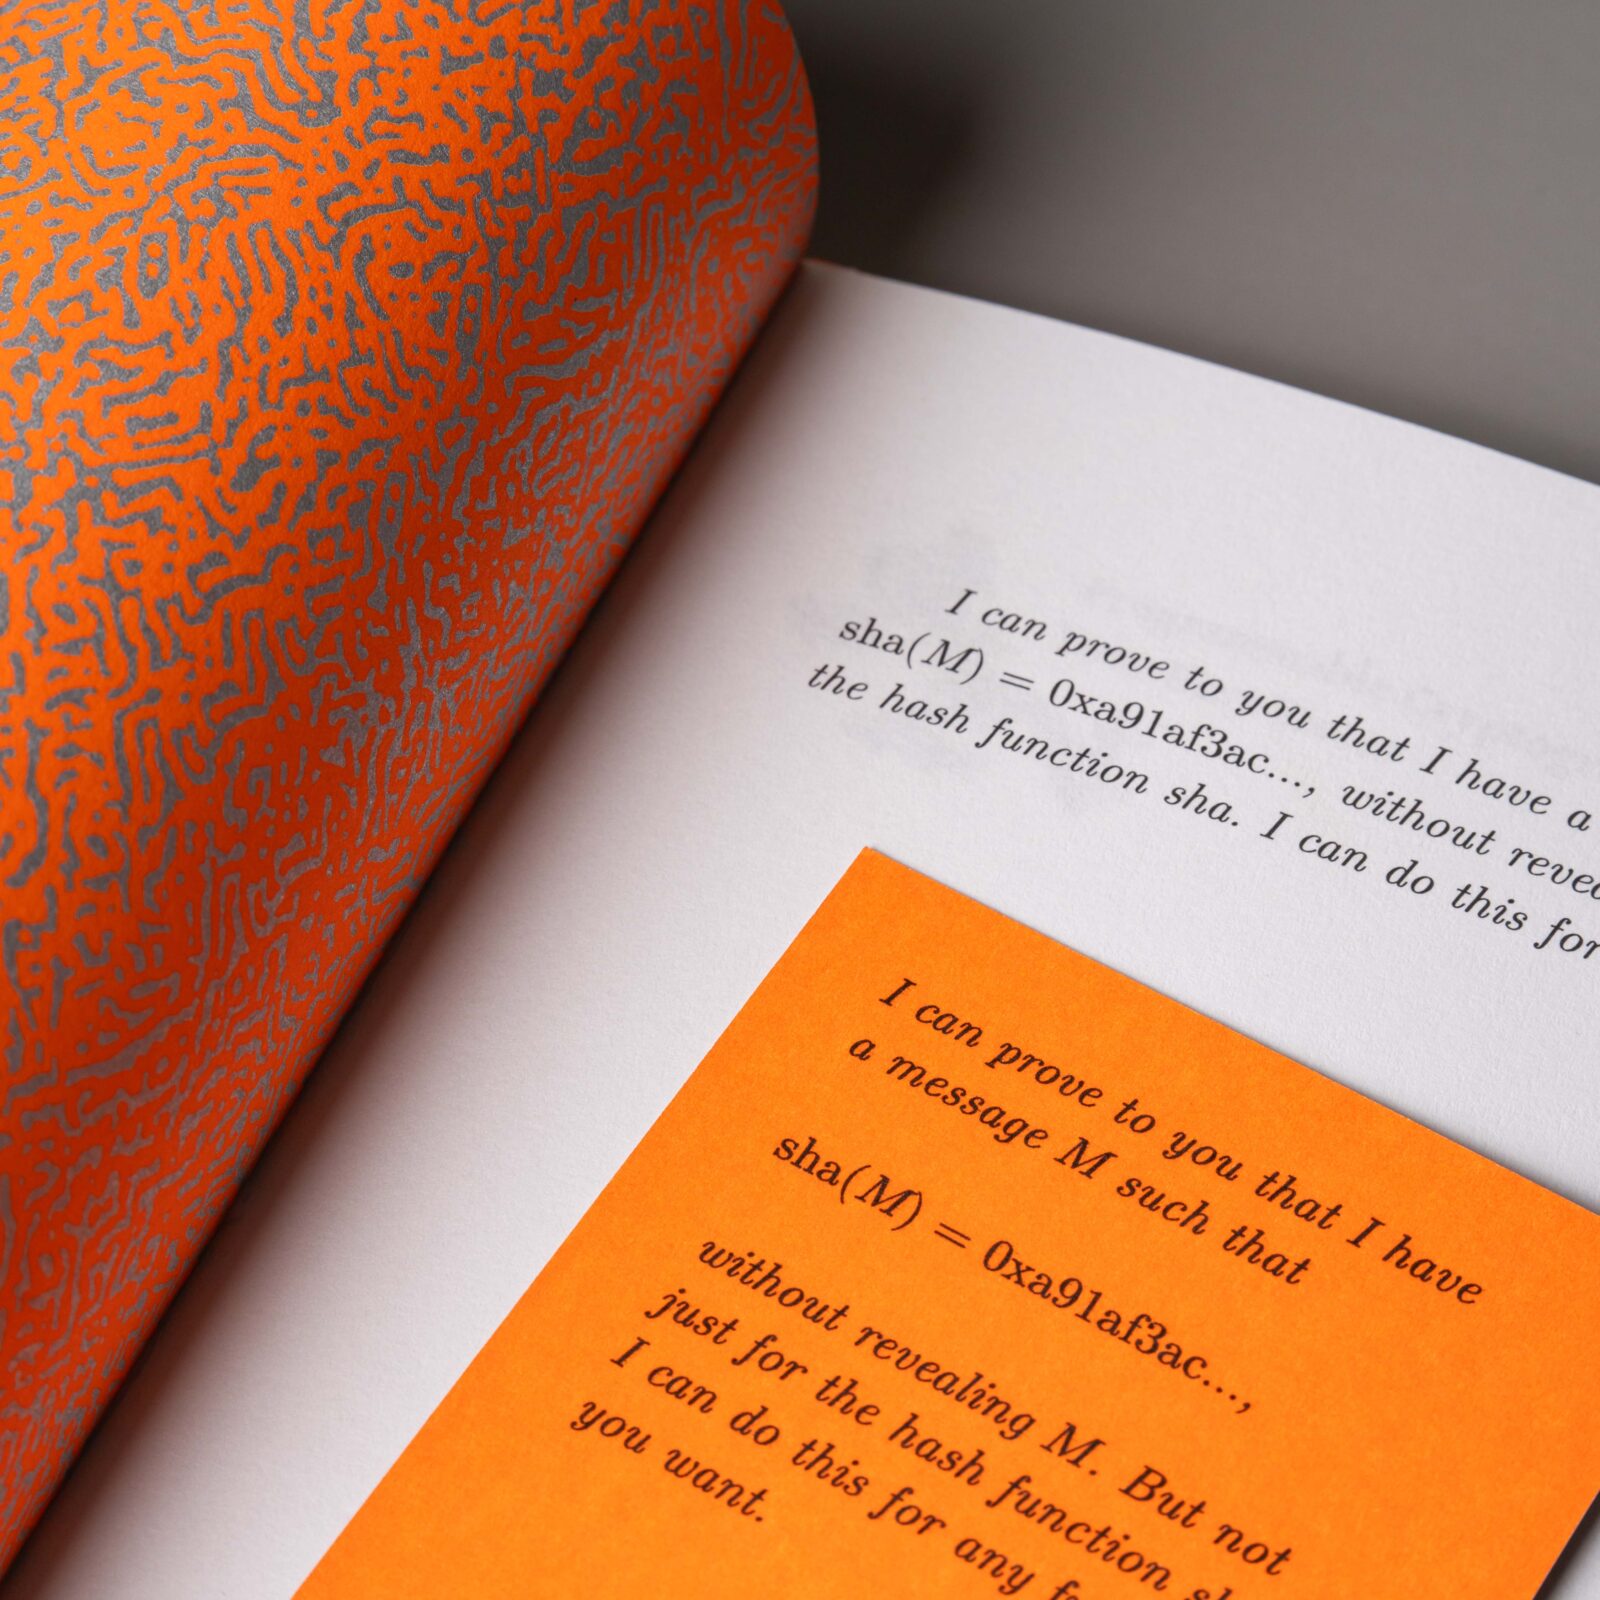 I can prove to you that I have a
sha(M) = 0xa91af3ac..., without
the hash function sha. I can do this for
I can prove to you that I have
a message M such that
sha(M) = 0xa91af3ac...,
without revealing M. But not
just for the hash function
I can do this for any
you want.